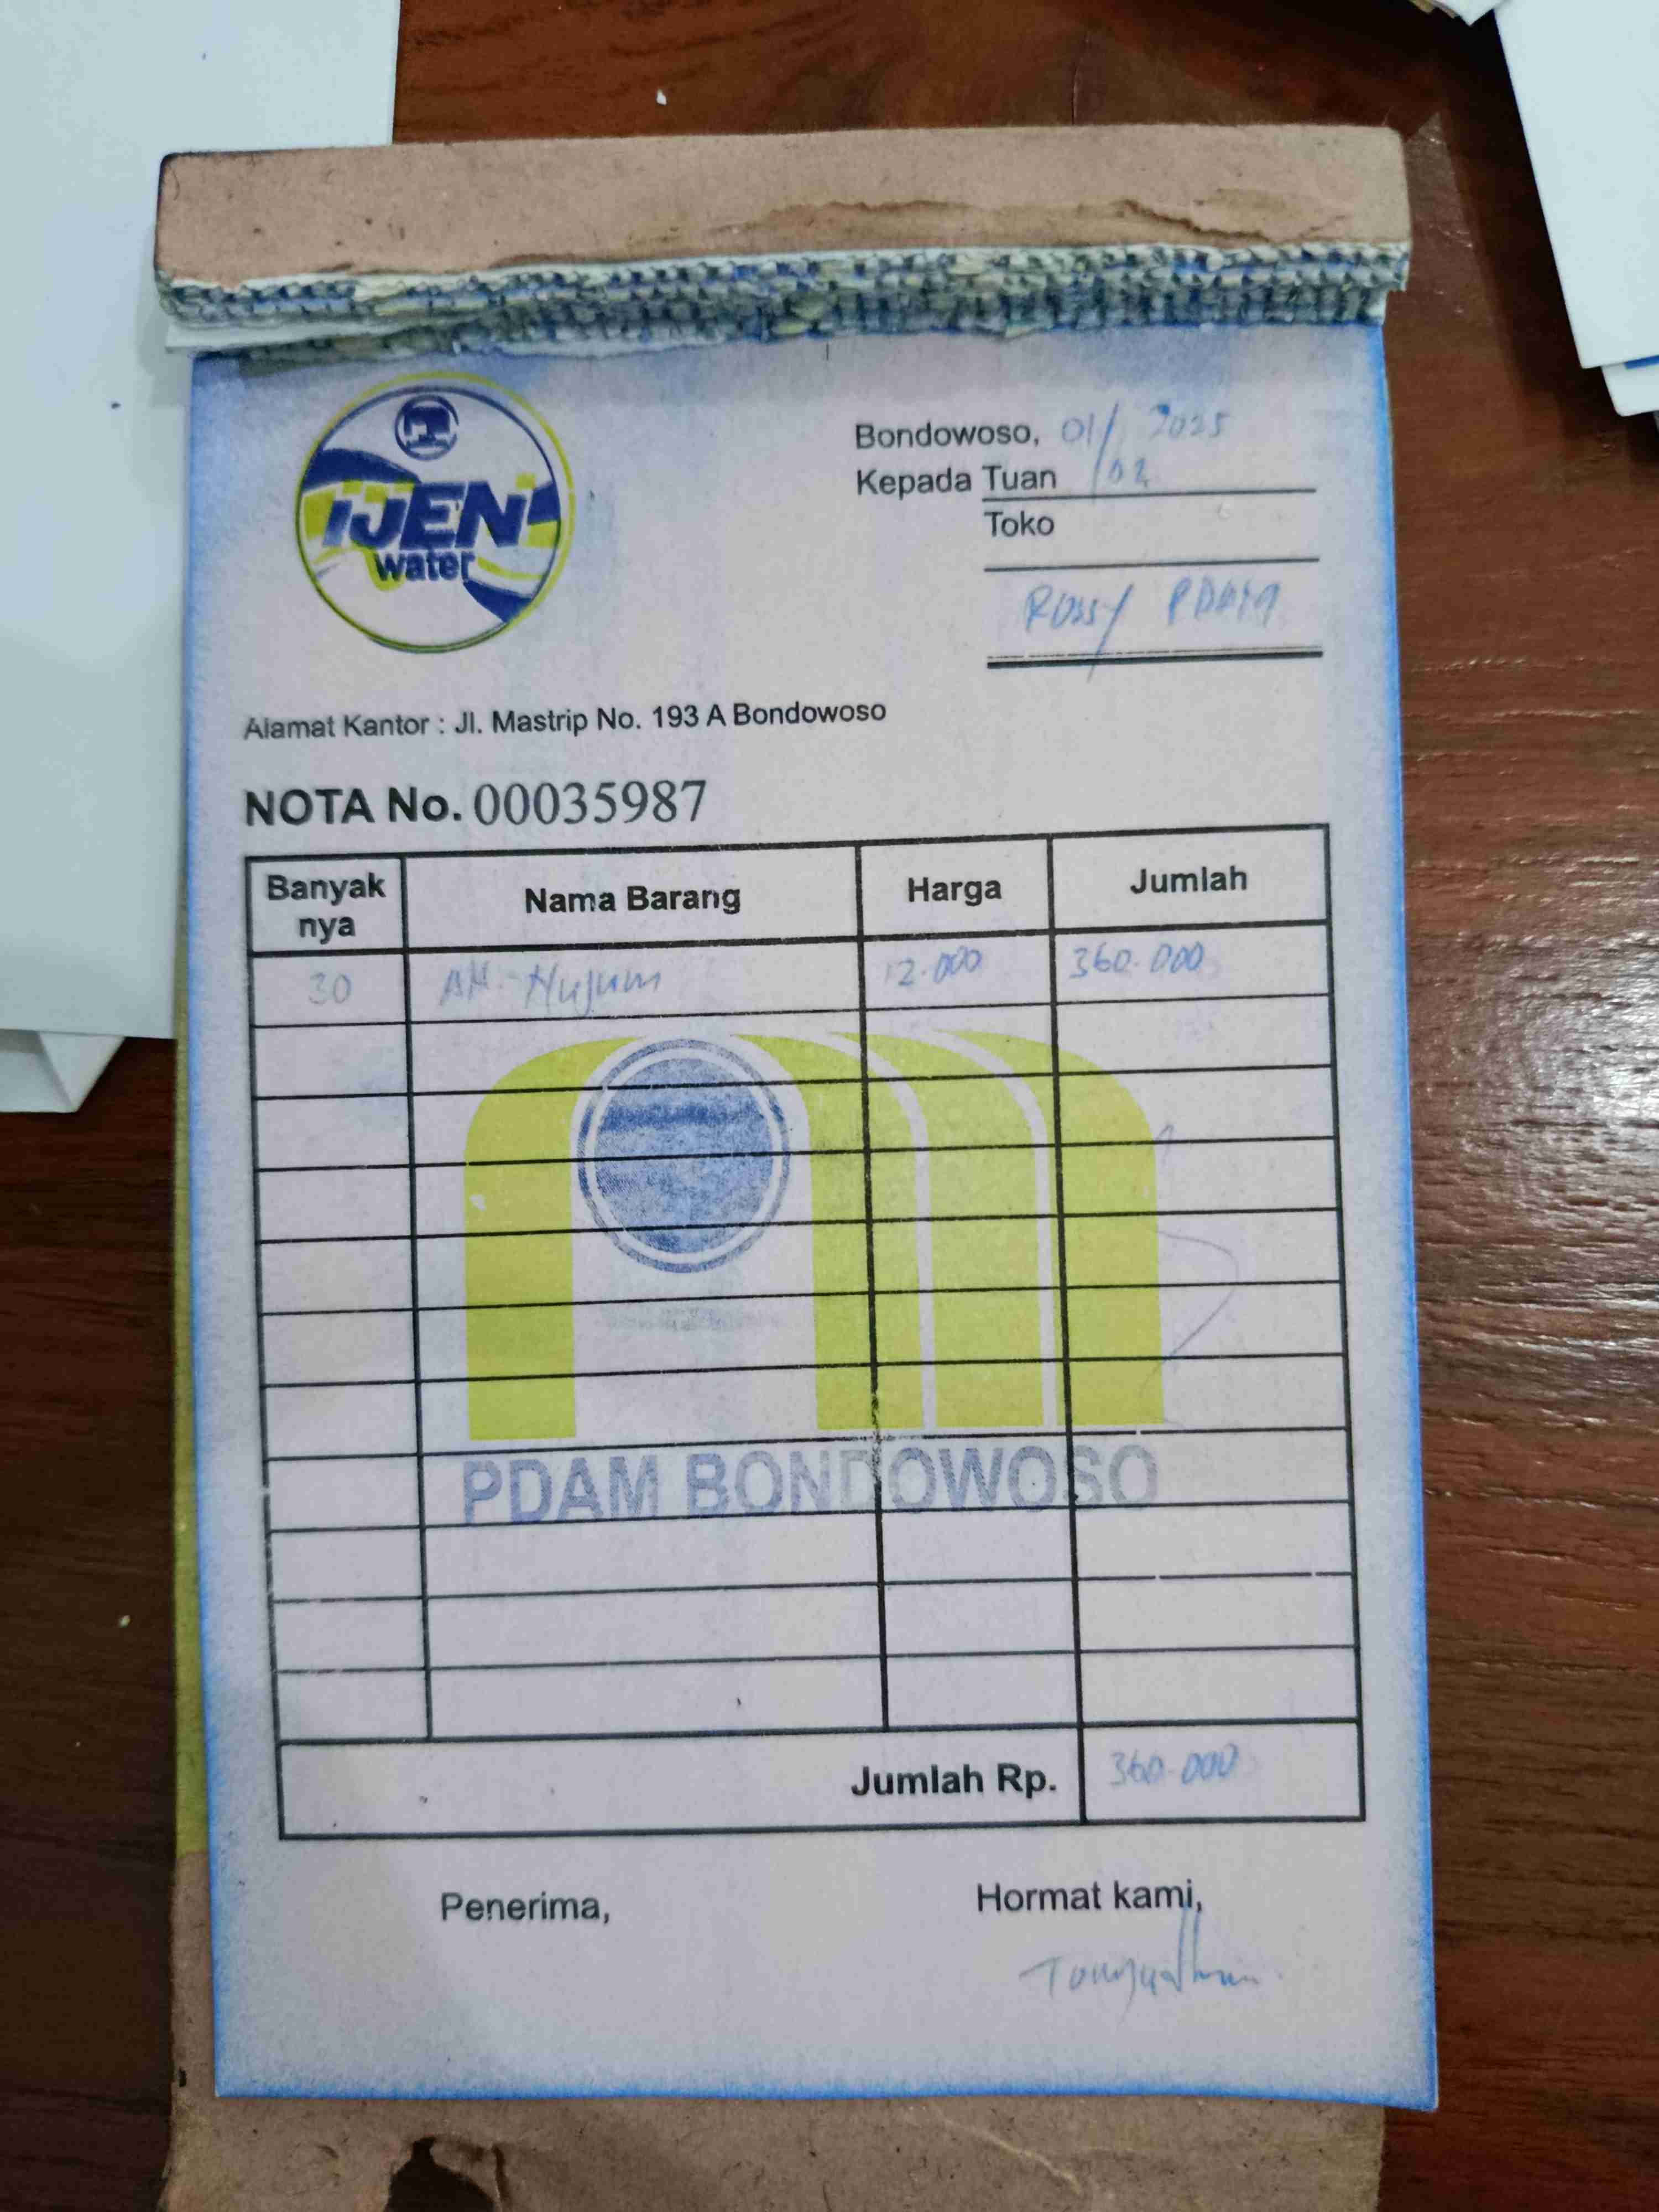 IJEN
water
Bondowoso, 01/02 2025
Kepada Tuan
Toko
Rossy PDAM
Alamat Kantor : Jl. Mastrip No. 193 A Bondowoso
NOTA No. 00035987
Banyak nya Nama Barang Harga Jumlah
30 An-Nujum 12.000 360.000
PDAM BONDOWOSO
Jumlah Rp. 360.000
Penerima, Hormat kami,